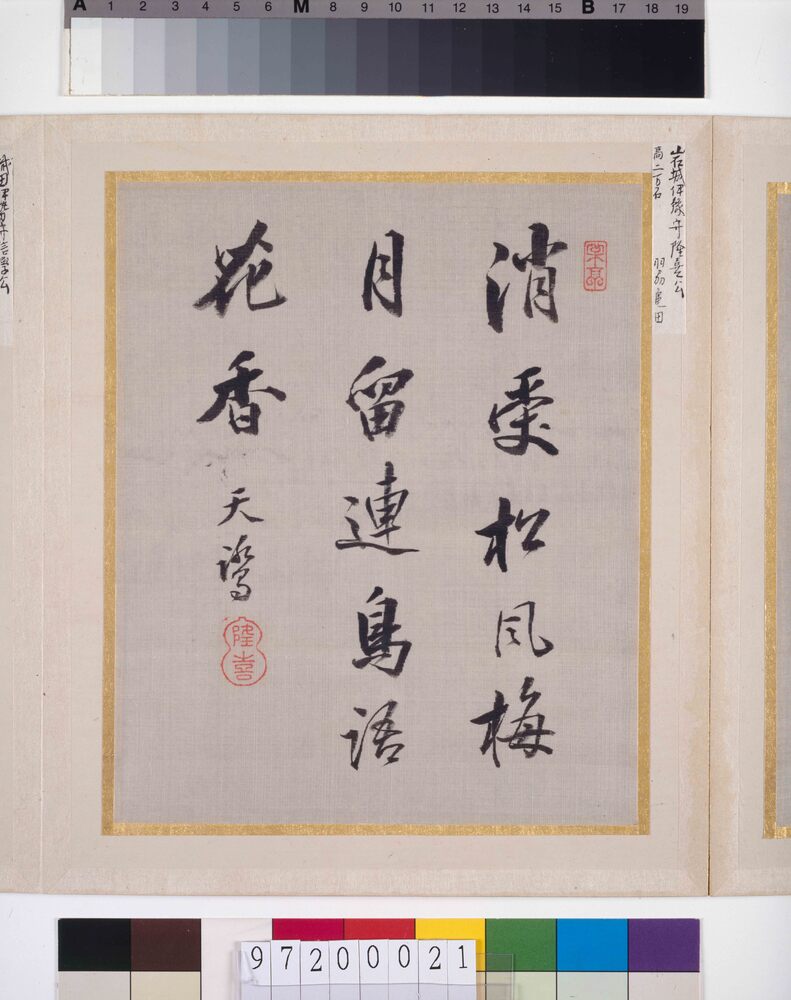 A 1 2 3 4 5 6 M 8 9 10 11 12 13 14 15 B 17 18 19
岩城伊豫守隆喜公
高二万石 羽州亀田
消受松風梅
月留連鳥語
花香 天
隆喜
97200021